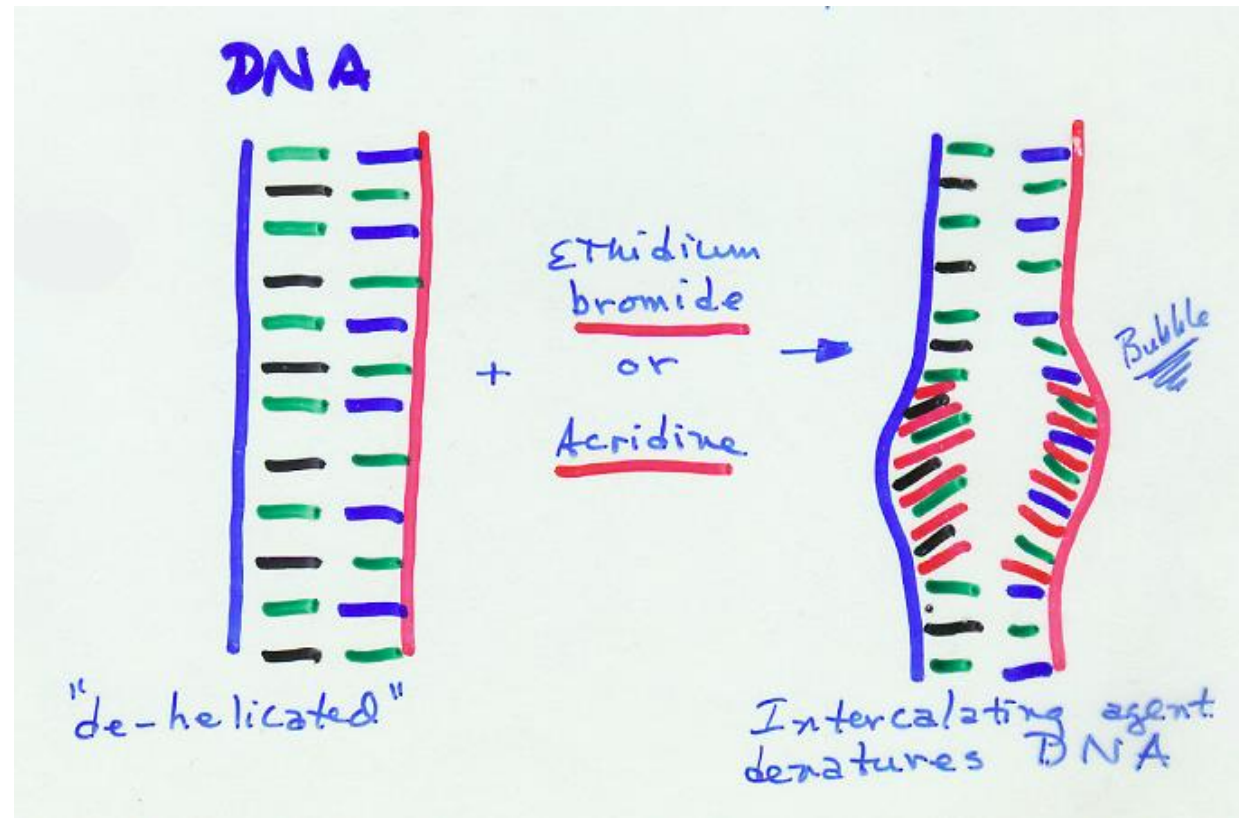 DNA
Ethidium
bromide
+ or →
Acridine
Bubble
"de-helicated"
Intercalating agent
denatures DNA